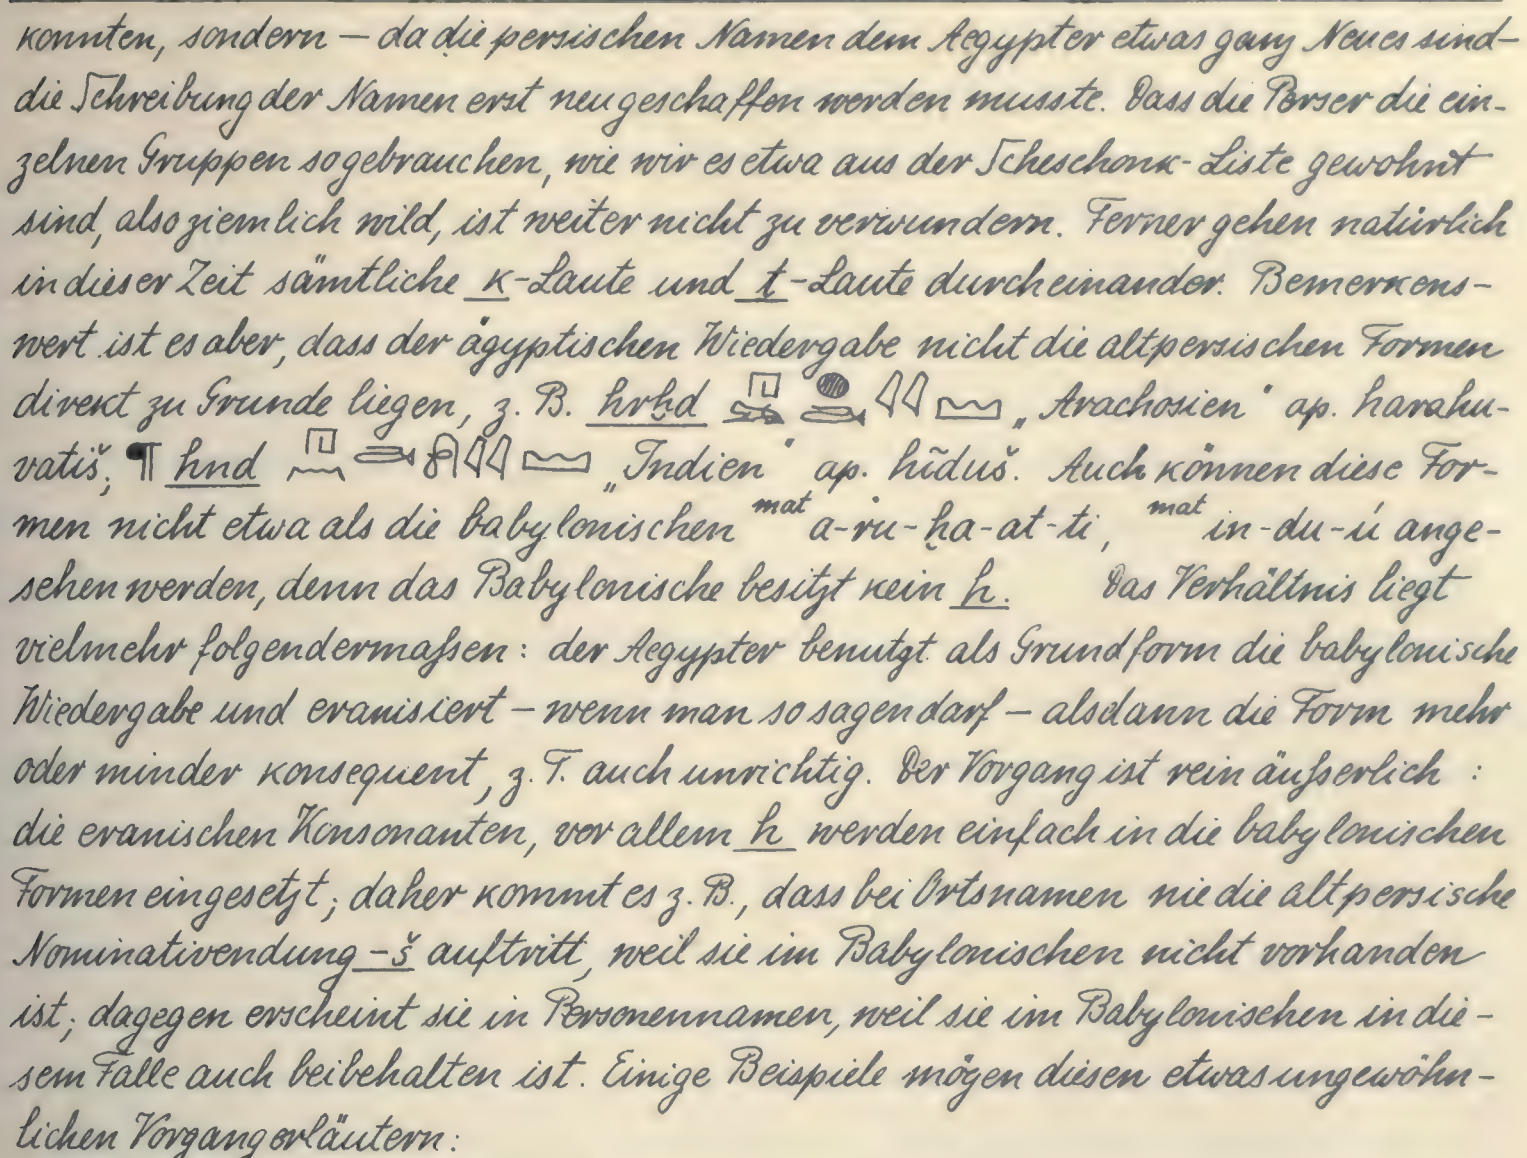 konnten, sondern — da die persischen Namen dem Aegypter etwas ganz Neues sind —
die Schreibung der Namen erst neu geschaffen werden musste. Dass die Perser die ein-
zelnen Gruppen so gebrauchen, wie wir es etwa aus der Scheschonk-Liste gewohnt
sind, also ziemlich wild, ist weiter nicht zu verwundern. Ferner gehen natürlich
in dieser Zeit sämtliche k-Laute und t-Laute durcheinander. Bemerkens-
wert ist es aber, dass der ägyptischen Wiedergabe nicht die altpersischen Formen
direkt zu Grunde liegen, z. B. hrḫd „Arachosien" ap. harahu-
vatiš, ¶ hnd „Indien" ap. hĩduš. Auch können diese For-
men nicht etwa als die babylonischen mat a-ru-ḫa-at-ti, mat in-du-ú ange-
sehen werden, denn das Babylonische besitzt kein h. Das Verhältnis liegt
vielmehr folgendermaßen: der Aegypter benutzt als Grundform die babylonische
Wiedergabe und eranisiert – wenn man so sagen darf – alsdann die Form mehr
oder minder konsequent, z. T. auch unrichtig. Der Vorgang ist rein äußerlich :
die eranischen Konsonanten, vor allem h werden einfach in die babylonischen
Formen eingesetzt; daher kommt es z. B., dass bei Ortsnamen nie die altpersische
Nominativendung -š auftritt, weil sie im Babylonischen nicht vorhanden
ist; dagegen erscheint sie in Personennamen, weil sie im Babylonischen in die-
sem Falle auch beibehalten ist. Einige Beispiele mögen diesen etwas ungewöhn-
lichen Vorgang erläutern: